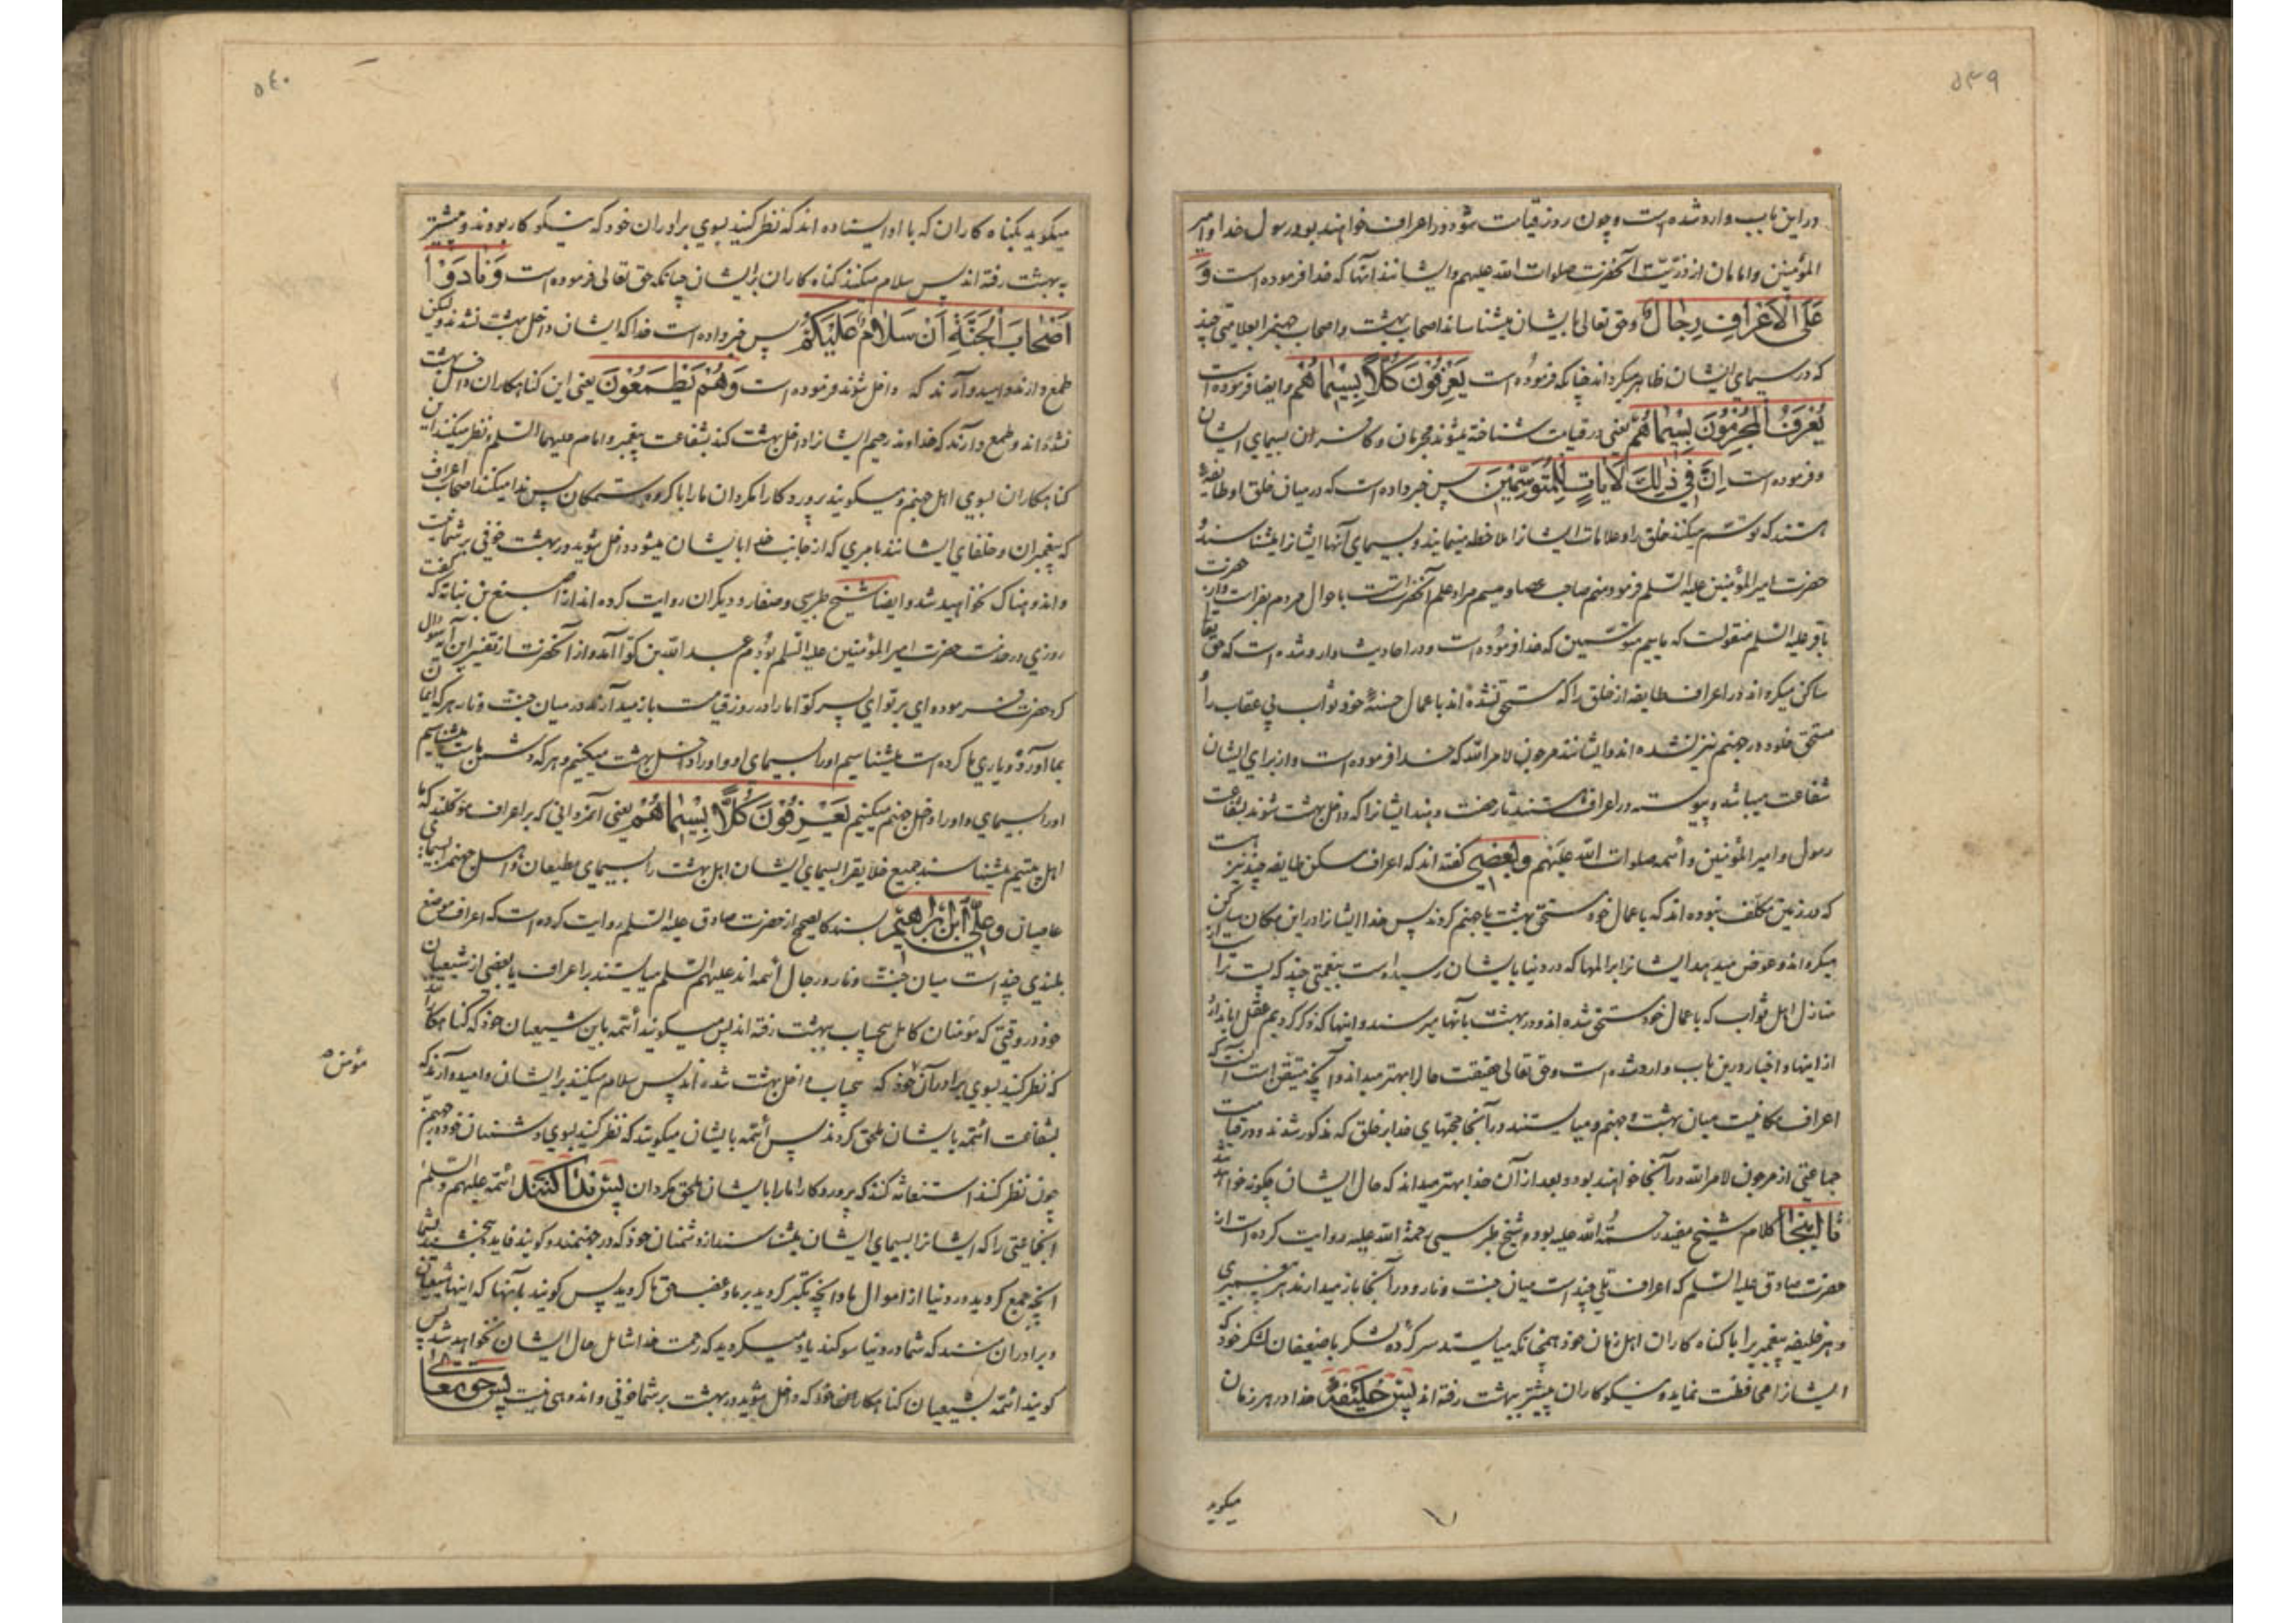 ۵۳۹
در این باب وارد شده است و چون روز قیامت شود در اعراف خواهند بود رسول خدا و امیر
المؤمنین و امامان از ذریّت آنحضرت صلوات الله علیهم و ایشانند آنها که خدا فرموده است وَ
عَلَی الْاَعْرافِ رِجالٌ و حق تعالی بایشان میشناساند اصحاب بهشت و اصحاب جهنم را بعلامتی چند
که در سیمای ایشان ظاهر میگرداند چنانکه فرموده است یَعْرِفُونَ کُلًّا بِسِیماهُمْ و ایضا فرموده است
یُعْرَفُ الْمُجْرِمُونَ بِسِیماهُمْ یعنی در قیامت شناخته میشوند مجرمان و کافران بسیمای ایشان
و فرموده است اِنَّ فِی ذٰلِکَ لَآیاتٍ لِلْمُتَوَسِّمِینَ پس خبر داده است که در میان خلق او طایفه
هستند که توسم میکنند خلق را و علامات ایشانرا ملاحظه مینمایند و بسیمای آنها ایشانرا میشناسند و
حضرت امیر المؤمنین علیه السّلم فرمود منم صاحب عصا و میسم مراد علم آنحضرتست باحوال مردم بفراست و از حضرت
باقر علیه السّلم منقولست که ماییم متوسمین که خدا فرموده است و در احادیث وارد شده است که حق تعالی
ساکن میگرداند در اعراف طایفه از خلق را که مستحق نشده اند باعمال حسنهٔ خود ثواب بی عقاب را و
مستحق خلود در جهنم نیز نشده اند و ایشانند مرجون لامر الله که خدا فرموده است و از برای ایشان
شفاعت میباشد و پیوسته در اعراف هستند تا رخصت دهند ایشانرا که داخل بهشت شوند بشفاعت
رسول و امیر المؤمنین و أئمه صلوات الله علیهم و بعضی گفته اند که اعراف مسکن طایفه چند نیز هست
که در زمین مکلف نبوده اند که باعمال خود مستحق بهشت یا جهنم گردند پس خدا ایشانرا در این مکان ساکن
میگرداند و عوض میدهد ایشانرا بر المها که در دنیا بایشان رسیده است بنعمتی چند که پست تر است از
منازل اهل ثواب که باعمال خود مستحق شده اند و در بهشت بآنها میرسند و اینها که ذکر کردیم عقل ابا ندارد
از اینها و اخبار درین باب وارد شده است و حق تعالی حقیقت حال را بهتر میداند و آنچه متیقن است آنست که
اعراف مکانیست میان بهشت و جهنم و میایستند در آنجا حجتهای خدا بر خلق که مذکور شدند و در قیامت
جماعتی از مرجون لامر الله در آنجا خواهند بود و بعد از آن خدا بهتر میداند که حال ایشان چگونه خواهد شد
تا اینجا کلام شیخ مفید رحمة الله علیه بود و شیخ طبرسی رحمة الله علیه روایت کرده است از
حضرت صادق علیه السّلم که اعراف تلی چند است میان جنت و نار و در آنجا باز میدارند هر پیغمبری
و هر خلیفه پیغمبر را با گناه کاران اهل زمان خود همچنانکه میایستد سر کردهٔ لشکر با ضعیفان لشکر خود که
ایشانرا محافظت نماید و نیکو کاران پیشتر ببهشت رفته اند پس خلیفهٔ خدا در هر زمان
میگوید
۵۴۰
میگوید بگناه کاران که با او ایستاده اند که نظر کنید بسوی برادران خود که نیکو کار بودند و پیشتر
به بهشت رفته اند پس سلام میکنند گناه کاران بر ایشان چنانکه حق تعالی فرموده است وَ نادَوْا
اَصْحابَ الْجَنَّةِ اَنْ سَلامٌ عَلَیْکُمْ پس خبر داده است خدا که ایشان داخل بهشت نشدند و لیکن
طمع دارند و امید دارند که داخل شوند فرموده است وَ هُمْ یَطْمَعُونَ یعنی این گناهکاران داخل بهشت
نشده اند و طمع دارند که خداوند رحیم ایشانرا داخل بهشت کند بشفاعت پیغمبر و امام علیهما السّلم و نظر میکنند این
گناهکاران بسوی اهل جهنم و میگویند پروردگارا مگردان ما را با گروه ستمکاران پس ندا میکنند اصحاب اعراف
که پیغمبران و خلفای ایشانند بامری که از جانب خدا بایشان میشود داخل شوید در بهشت خوفی بر شما نیست
و اندوهناک نخواهید شد و ایضا شیخ طبرسی و صفار و دیگران روایت کرده اند از اصبغ بن نباته که گفت
روزی در خدمت حضرت امیر المؤمنین علیه السّلم بودم عبد الله بن کوّا آمد و از آنحضرت از تفسیر این آیه سؤال
کرد حضرت فرمود وای بر تو ای پسر کوّا ما را در روز قیامت باز میدارند در میان جنت و نار هر که ایمان
بما آورده و یاری ما کرده است میشناسیم او را بسیمای او و او را داخل بهشت میکنیم و هر که دشمن ماست میشناسیم
او را بسیمای او و او را داخل جهنم میکنیم یَعْرِفُونَ کُلًّا بِسِیماهُمْ یعنی آنمردانی که بر اعراف موکلند که ما
اهل بیتیم میشناسند جمیع خلایقرا بسیمای ایشان اهل بهشت را بسیمای مطیعان و اهل جهنم را بسیمای
عاصیان و علی ابن ابراهیم بسند کالصحیح از حضرت صادق علیه السّلم روایت کرده است که اعراف موضع
بلندی چند است میان جنت و نار و رجال أئمه اند علیهم السّلم میایستند بر اعراف با بعضی از شیعیان
خود در وقتی که مؤمنان کامل بیحساب ببهشت رفته اند پس میگویند أئمه باین شیعیان خود که گناهکارند
که نظر کنید بسوی برادران خود که بیحساب داخل بهشت شده اند پس سلام میکنند بر ایشان و امید دارند که
مؤمن
بشفاعت ائمه بایشان ملحق گردند پس أئمه بایشان میگویند که نظر کنید بسوی دشمنان خود در جهنم
چون نظر کنند استغاثه کنند که پروردگارا ما را بایشان ملحق مگردان پس ندا کنند ائمه علیهم السّلم
آنجماعتی را که ایشانرا بسیمای ایشان میشناسند از دشمنان خود که در جهنمند و گویند فایده نبخشید بشما
آنچه جمع کردید در دنیا از اموال ما و آنچه تکبر کردید بر ما و غصب حق ما کردید پس گویند بآنها که اینها شیعیان
و برادران منند که شما در دنیا سوگند یاد میکردید که رحمت خدا شامل حال ایشان نخواهد شد پس
گویند ائمه بشیعیان گناهکار خود که داخل شوید در بهشت بر شما خوفی و اندوهی نیست پس حق تعالی